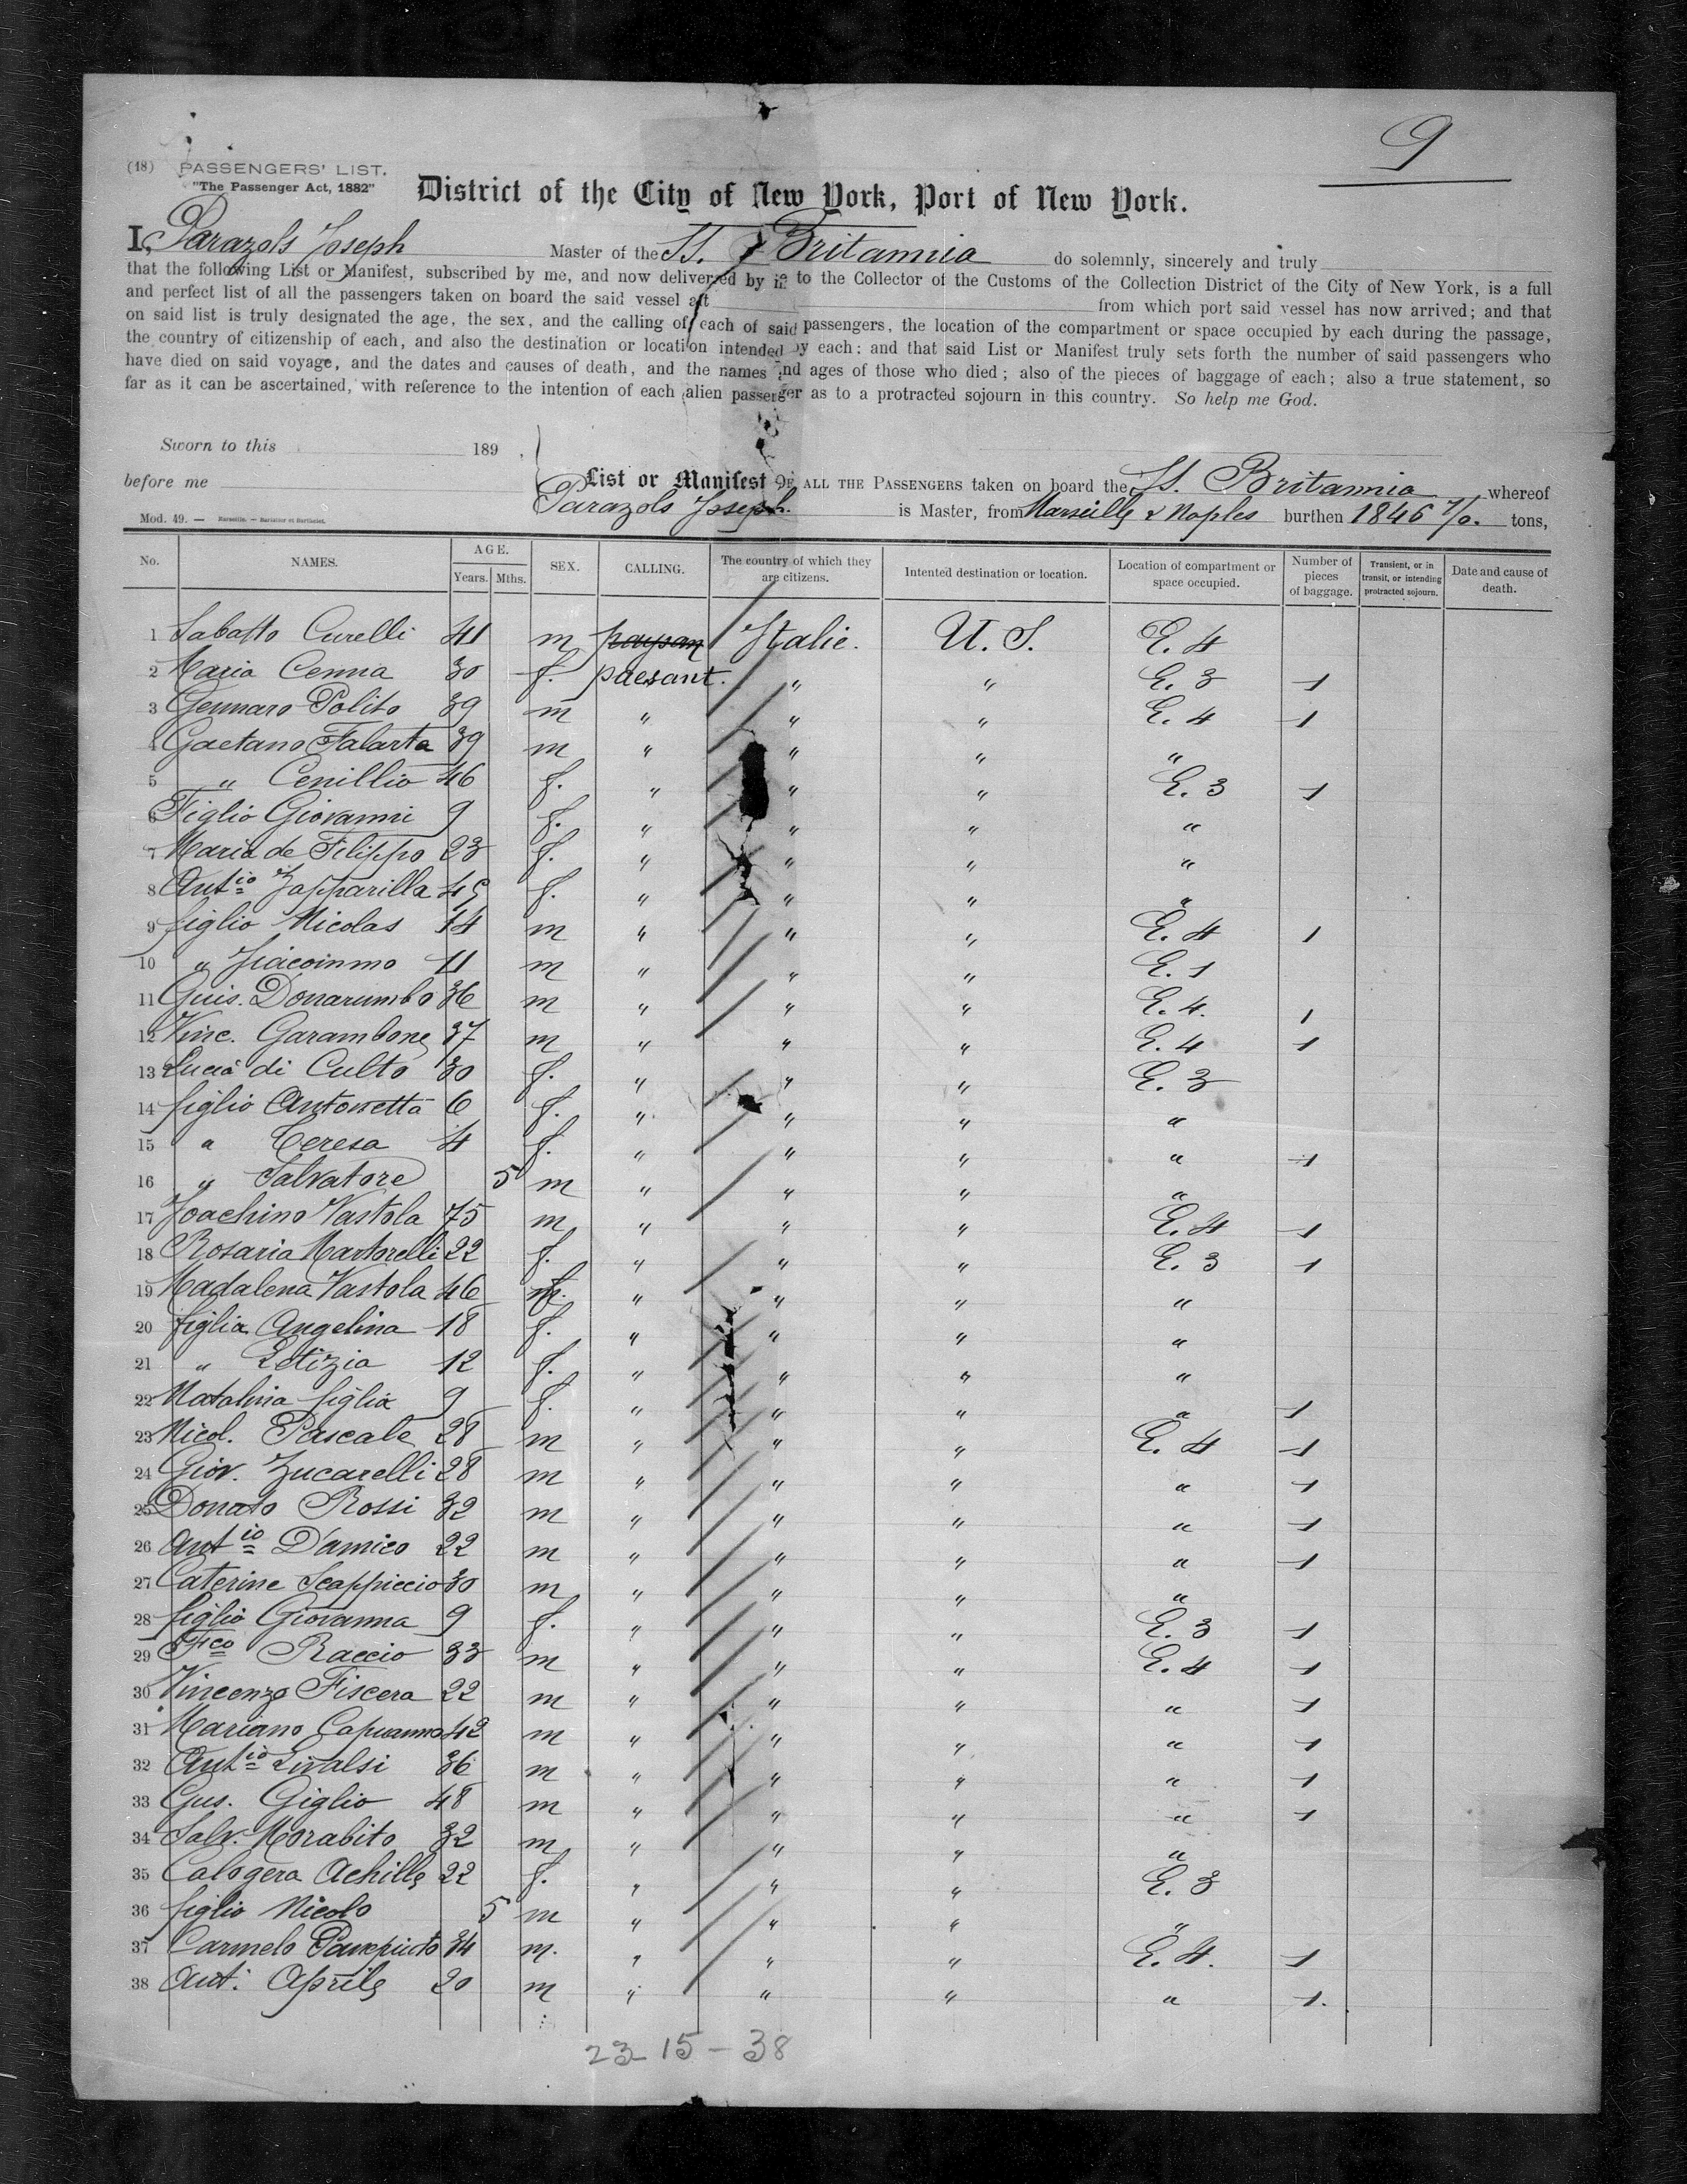 9
(18) PASSENGERS' LIST.
"The Passenger Act, 1882"
District of the City of New York, Port of New York.
I, Parazols Joseph Master of the SS. Britannia do solemnly, sincerely and truly
that the following List or Manifest, subscribed by me, and now delivered by me to the Collector of the Customs of the Collection District of the City of New York, is a full
and perfect list of all the passengers taken on board the said vessel at from which port said vessel has now arrived; and that
on said list is truly designated the age, the sex, and the calling of each of said passengers, the location of the compartment or space occupied by each during the passage,
the country of citizenship of each, and also the destination or location intended by each; and that said List or Manifest truly sets forth the number of said passengers who
have died on said voyage, and the dates and causes of death, and the names and ages of those who died; also of the pieces of baggage of each; also a true statement, so
far as it can be ascertained, with reference to the intention of each alien passenger as to a protracted sojourn in this country. So help me God.
Sworn to this 189 ,
before me
List or Manifest OF ALL THE PASSENGERS taken on board the SS. Britannia whereof
Parazols Joseph. is Master, from Marseille & Naples burthen 1846 tons,
Mod. 49. — Marseille. — Barlatier et Barthelet.
No. NAMES. AGE. Years. Mths. SEX. CALLING. The country of which they are citizens. Intented destination or location. Location of compartment or space occupied. Number of pieces of baggage. Transient, or in transit, or intending protracted sojourn. Date and cause of death.
1 Sabatto Curelli 41 m paysan Italie. U.S. E. 4
2 Maria Cenna 30 f. paesant. " " E. 3 1
3 Gennaro Polito 39 m " " " E. 4 1
4 Gaetano Falarta 39 m " " " "
5 " Cenillio 46 f. " " " E. 3 1
6 Figlio Giovanni 9 f. " " " "
7 Maria de Filippo 23 f. " " " "
8 Antio Zapparilla 45 f. " " " "
9 figlio Nicolas 14 m " " " E. 4 1
10 " Giacoinmo 11 m " " " E. 1
11 Guis. Donarumbo 36 m " " " E. 4. 1
12 Vinc. Garambone 37 m " " " E. 4 1
13 Lucia di Culto 30 f. " " " E. 3
14 figlio Antonetta 6 f. " " " "
15 " Teresa 4 f. " " " " 1
16 " Salvatore 5 m " " " "
17 Joachino Vastola 75 m " " " E. 4 1
18 Rosaria Martorelli 22 f. " " " E. 3 1
19 Madalena Vastola 46 f. " " " "
20 figlia Angelina 18 f. " " " "
21 " Letizia 12 f. " " " "
22 Natalina figlia 9 f. " " " " 1
23 Nicol. Pascale 28 m " " " E. 4 1
24 Giov. Zucarelli 28 m " " " " 1
25 Donato Rossi 32 m " " " " 1
26 Antio D'amico 22 m " " " " 1
27 Caterine Scappiccio 30 m " " " "
28 figlio Giovanna 9 f. " " " E. 3 1
29 Fco Raccio 33 m " " " E. 4 1
30 Vincenzo Fiscera 22 m " " " " 1
31 Mariano Capuanno 42 m " " " " 1
32 Antio Livalsi 36 m " " " " 1
33 Gus. Giglio 48 m " " " " 1
34 Salv. Morabito 32 m " " " "
35 Calogera Achille 22 f. " " " E. 3
36 figlio Nicolo 5 m " " " "
37 Carmelo Panepinto 34 m. " " " E. 4. 1
38 Ant. Aprile 20 m " " " " 1.
23 - 15 - 38